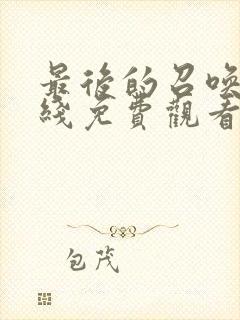 最後的召喚
綫免費觀看
包茂